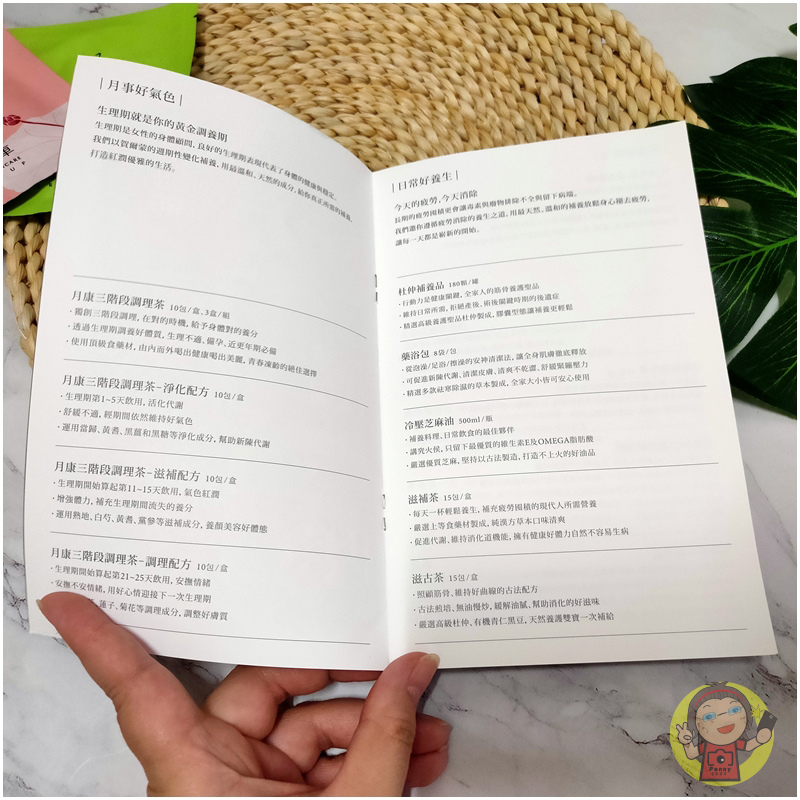 單
CARE
U
|月事好氣色|
生理期就是你的黃金調養期
生理期是女性的身體顧問，良好的生理期表現代表了身體的健康與穩定。
我們以賀爾蒙的週期性變化補養，用最溫和、天然的成分，給你真正所需的補養，
打造紅潤優雅的生活。
月康三階段調理茶 10包/盒，3盒/組
·獨創三階段調理，在對的時機，給予身體對的養分
·透過生理期調養好體質，生理不適、備孕、近更年期必備
·使用頂級食藥材，由內而外喝出健康喝出美麗，青春凍齡的絕佳選擇
月康三階段調理茶-淨化配方 10包/盒
·生理期第1~5天飲用，活化代謝
·舒緩不適，經期間依然維持好氣色
·運用當歸、黃耆、黑薑和黑糖等淨化成分，幫助新陳代謝
月康三階段調理茶-滋補配方 10包/盒
·生理期開始算起第11~15天飲用，氣色紅潤
·增強體力，補充生理期間流失的養分
·運用熟地、白芍、黃耆、黨參等滋補成分，養顏美容好體態
月康三階段調理茶-調理配方 10包/盒
·生理期開始算起第21~25天飲用，安撫情緒
·安撫不安情緒，用好心情迎接下一次生理期
蓮子、菊花等調理成分，調整好膚質
|日常好養生|
今天的疲勞，今天消除
長期的疲勞囤積更會讓毒素與廢物排除不全與留下病端。
我們邀你遵循疲勞消除的養生之道，用最天然、溫和的補養放鬆身心趕去疲勞，
讓每一天都是嶄新的開始。
杜仲補養品 180顆/罐
·行動力是健康關鍵，全家人的筋骨養護聖品
·維持日常所需，拒絕產後、術後關鍵時期的後遺症
·精選高級養護聖品杜仲製成，膠囊型態讓補養更輕鬆
藥浴包 8袋/包
·從泡澡/足浴/擦澡的安神清潔法，讓全身肌膚徹底釋放
·可促進新陳代謝、清潔皮膚、清爽不乾澀、舒緩緊繃壓力
·精選多款祛寒除濕的草本製成，全家大小皆可安心使用
冷壓芝麻油 500ml/瓶
·補養料理、日常飲食的最佳夥伴
·講究火侯，只留下最優質的維生素E及OMEGA脂肪酸
·嚴選優質芝麻，堅持以古法製造，打造不上火的好油品
滋補茶 15包/盒
·每天一杯輕鬆養生，補充疲勞囤積的現代人所需營養
·嚴選上等食藥材製成，純漢方草本口味清爽
·促進代謝、維持消化道機能，擁有健康好體力自然不容易生病
滋古茶 15包/盒
·照顧筋骨、維持好曲線的古法配方
·古法煎焙、無油慢炒，緩解油膩、幫助消化的好滋味
·嚴選高級杜仲、有機青仁黑豆，天然養護雙寶一次補給